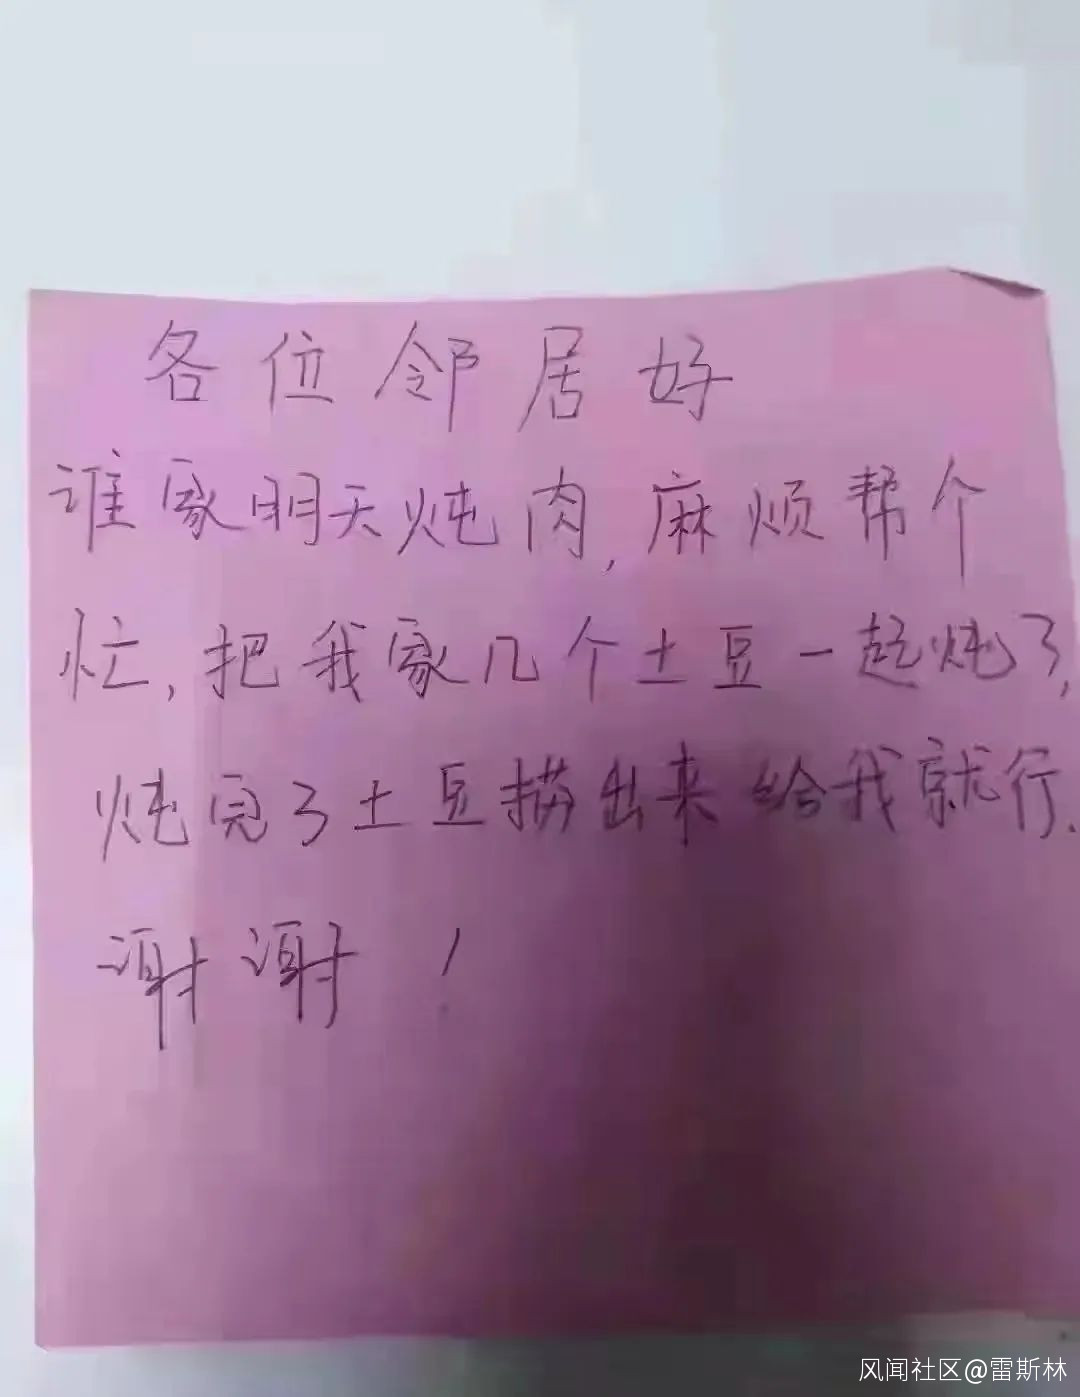 各位邻居好
谁家明天炖肉,麻烦帮个
忙,把我家几个土豆一起炖了,
炖完了土豆捞出来给我就行.
谢谢!
风闻社区@雷斯林